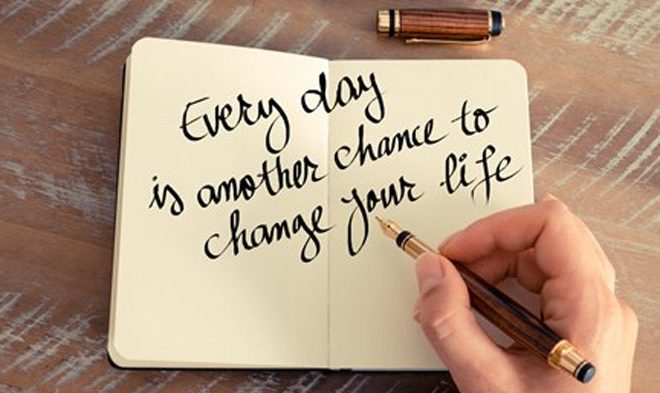 Every day
is another chance to
change your life